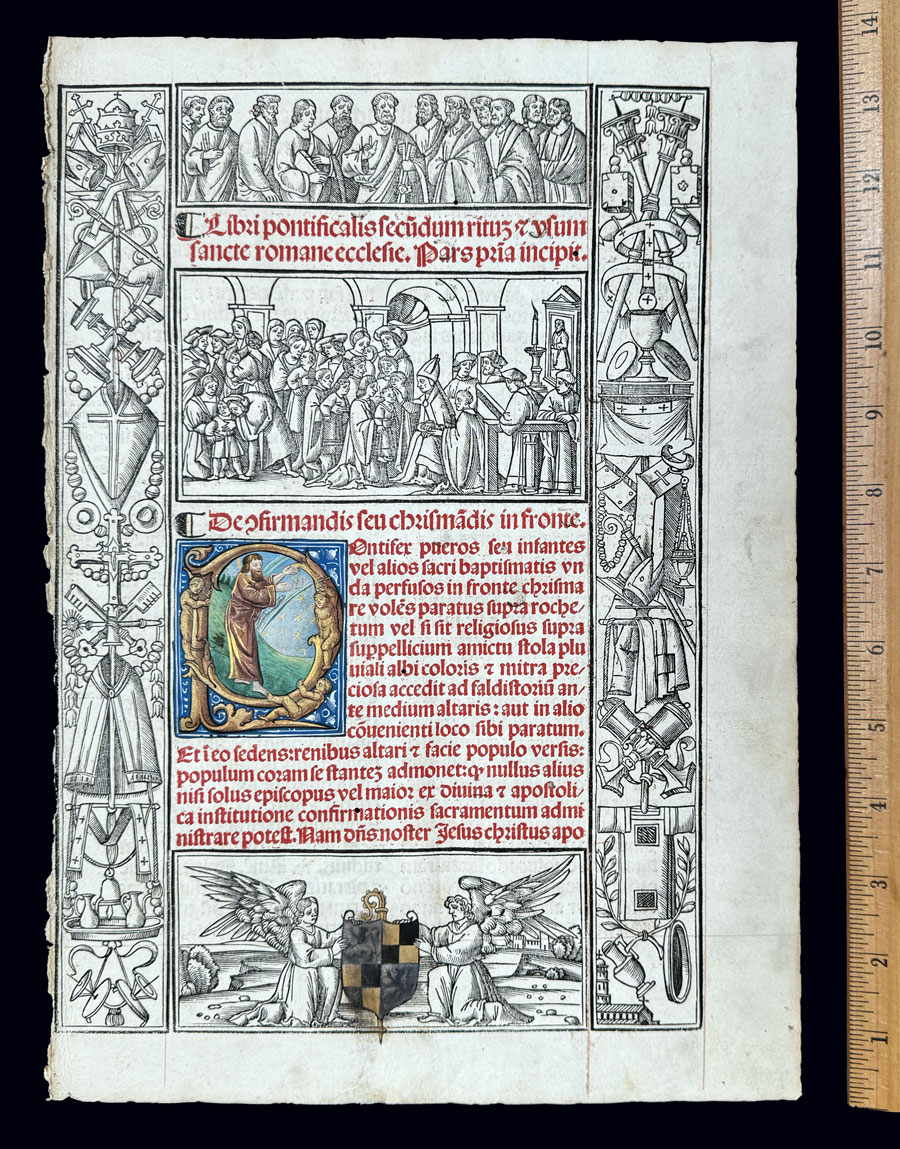 ¶ Libri pontificalis secūdum rituꝫ ⁊ vsum
sancte romane ecclesie. Pars pr̄ia incipit.
¶ De ꝯfirmandis seu chrismādis in fronte.
POntifex pueros seu infantes
vel alios sacri baptismatis vn
da perfusos in fronte chrisma
re volēs paratus supra roche-
tum vel si sit religiosus supra
suppellicium amictu stola plu
uiali albi coloris ⁊ mitra pre-
ciosa accedit ad faldistoriū an-
te medium altaris: aut in alio
cōuenienti loco sibi paratum.
Et ī eo sedens: renibus altari ⁊ facie populo versis:
populum coram se stanteꝫ admonet: ꝙ nullus alius
nisi solus episcopus vel maior ex diuina ⁊ apostoli-
ca institutione confirmationis sacramentum admi
nistrare potest. Nam dn̄s noster Jesus christus apo
14
13
12
11
10
9
8
7
6
5
4
3
2
1